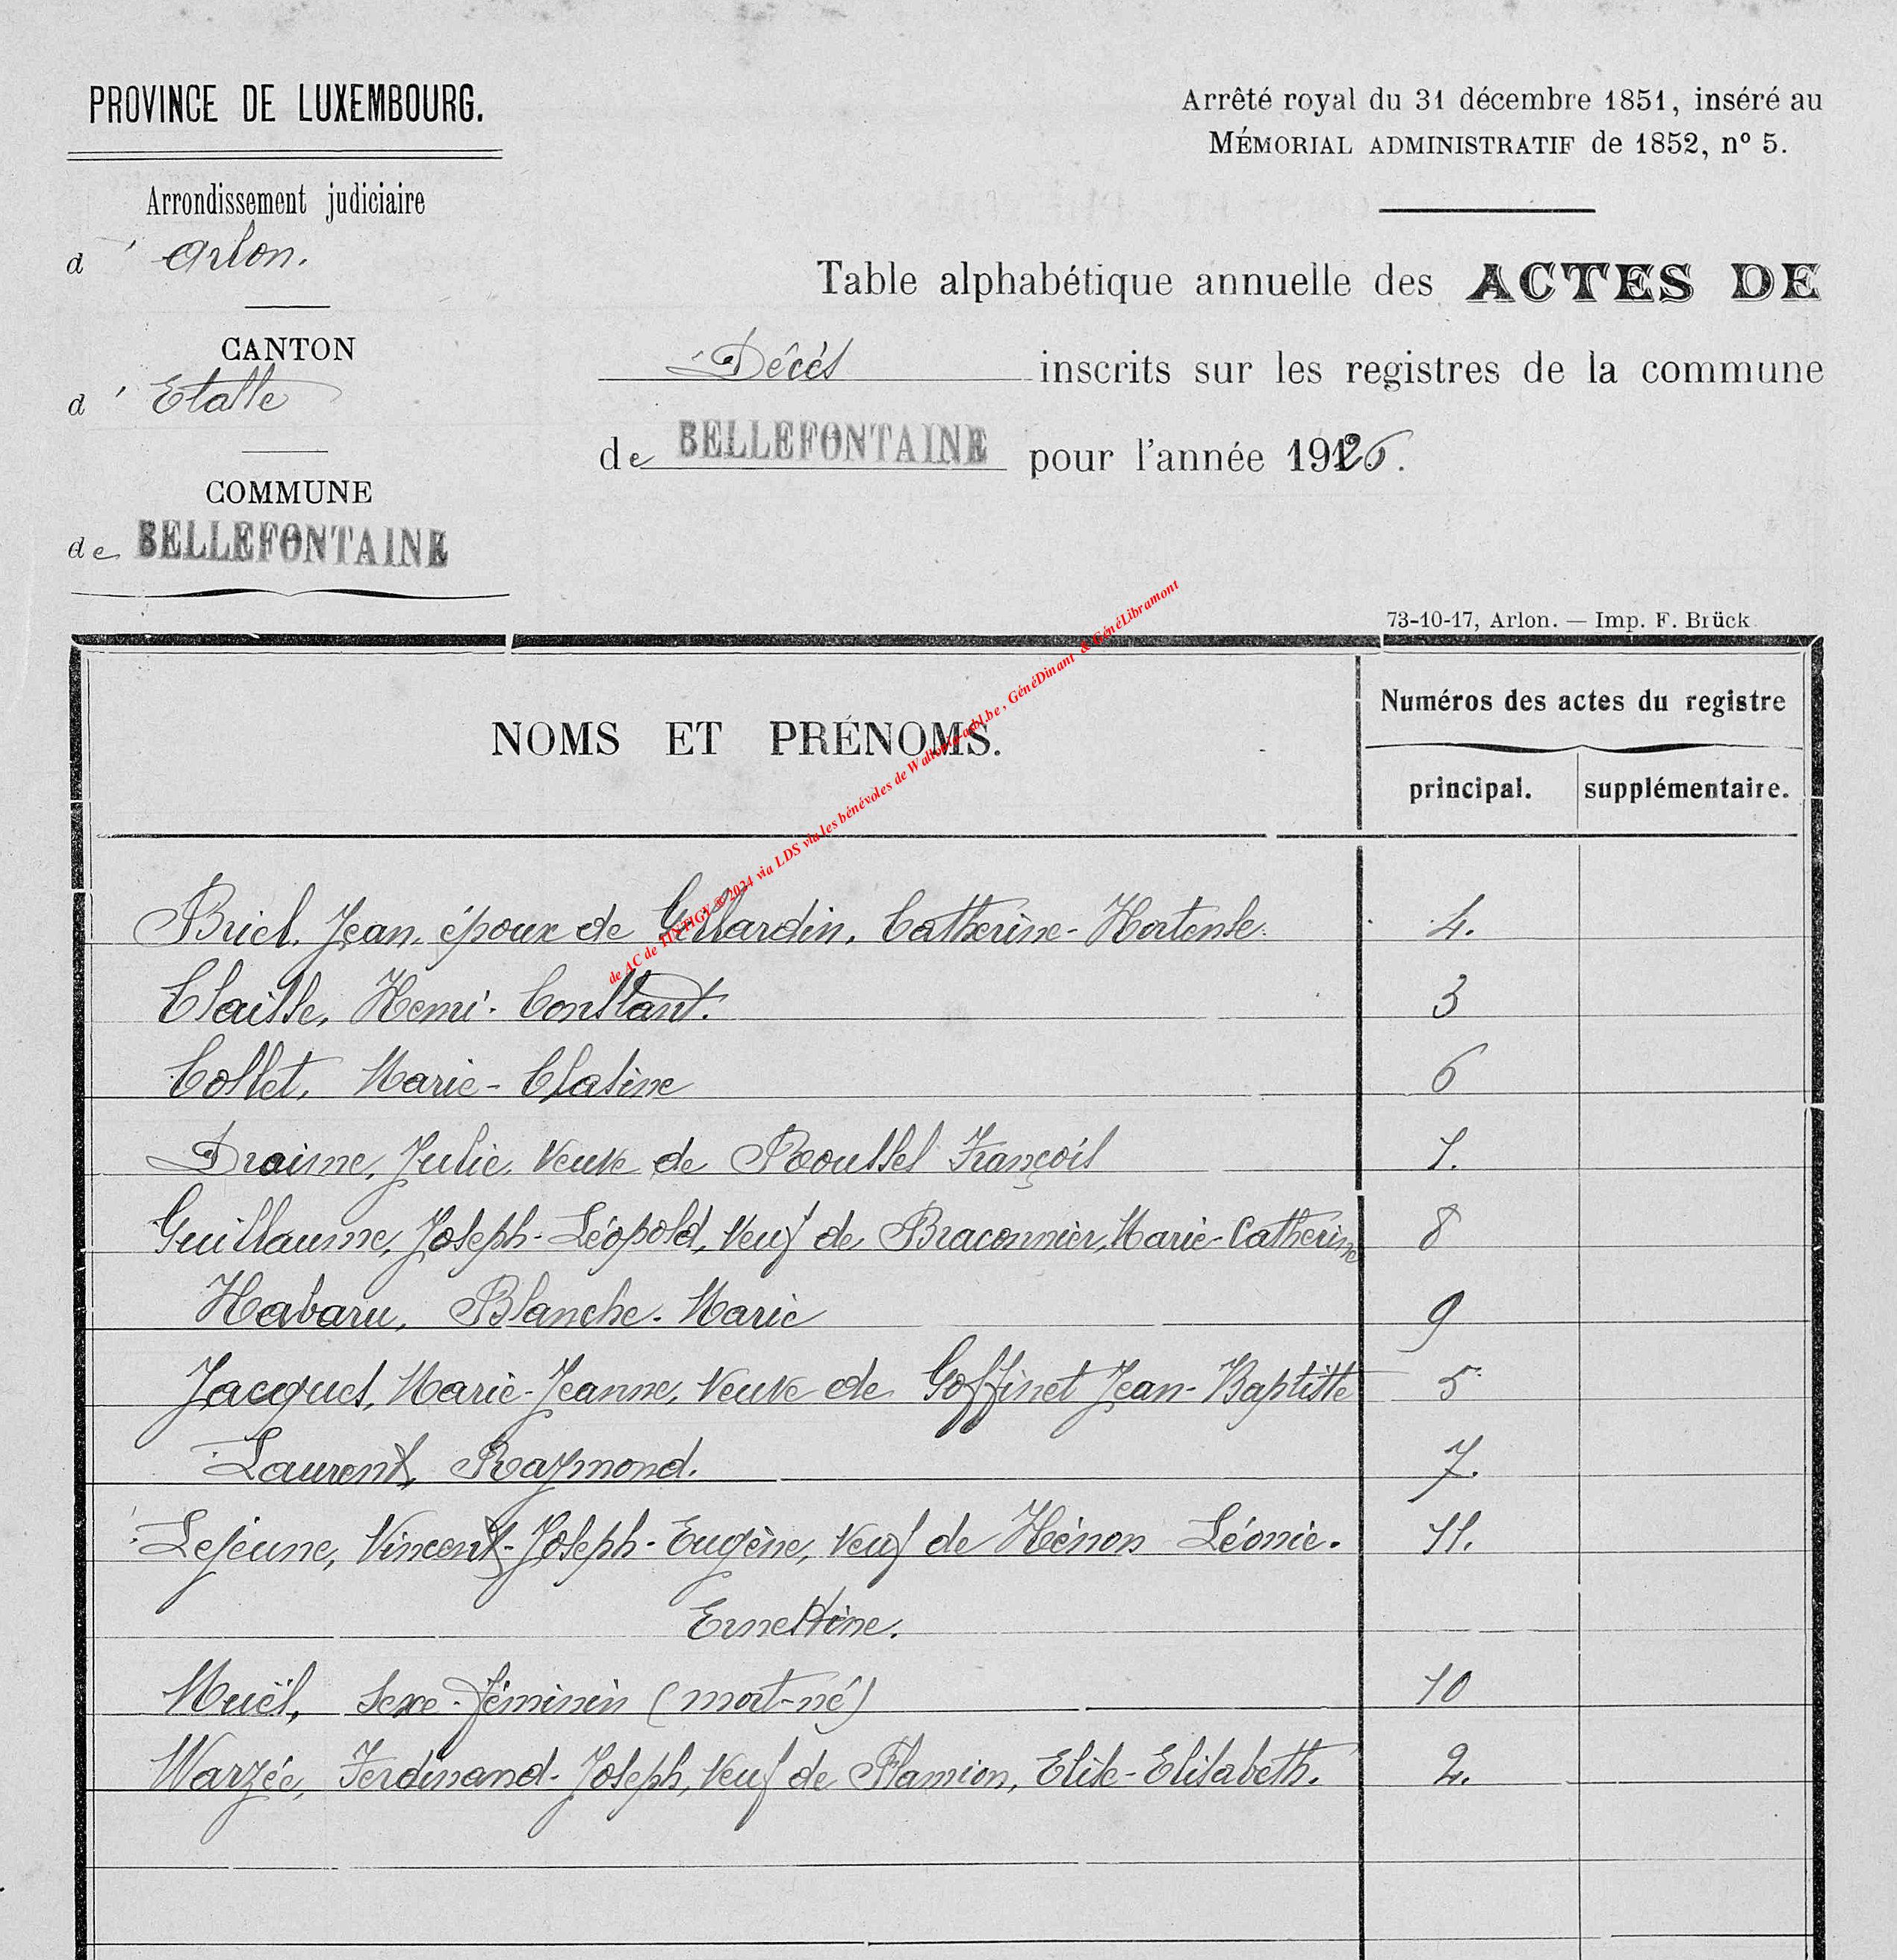 PROVINCE DE LUXEMBOURG.
Arrondissement judiciaire
d' Arlon.
CANTON
d' Etalle
COMMUNE
de BELLEFONTAINE
Arrêté royal du 31 décembre 1851, inséré au
MÉMORIAL ADMINISTRATIF de 1852, nº 5.
Table alphabétique annuelle des ACTES DE
Décès inscrits sur les registres de la commune
de BELLEFONTAINE pour l'année 1926.
73-10-17, Arlon. — Imp. F. Brück
NOMS ET PRÉNOMS.
Numéros des actes du registre
principal. supplémentaire.
de AC de TINTIGY © 2024 via LDS via les bénévoles de Wallonia-asbl.be, GénéDinant & GénéLibramont
Briel, Jean, époux de Gellardin, Catherine-Hortense. 4.
Claisse, Henri-Constant. 3
Collet, Marie- 6
Draime, Julie, veuve de Roussel François 1.
Guillaume, Joseph-Léopold, veuf de Braconnier, Marie-Catherine 8
Habaru, Blanche-Marie 9
Jacques, Marie-Jeanne, veuve de Goffinet Jean-Baptiste 5
Laurent, Raymond. 7.
Lejeune, Vincent-Joseph-Eugène, veuf de Hénon Léonie. 11.
Ernestine.
Muël, sexe féminin (mort-né) 10
Warzée, Ferdinand-Joseph, veuf de Flamion, Elise-Elisabeth. 2.